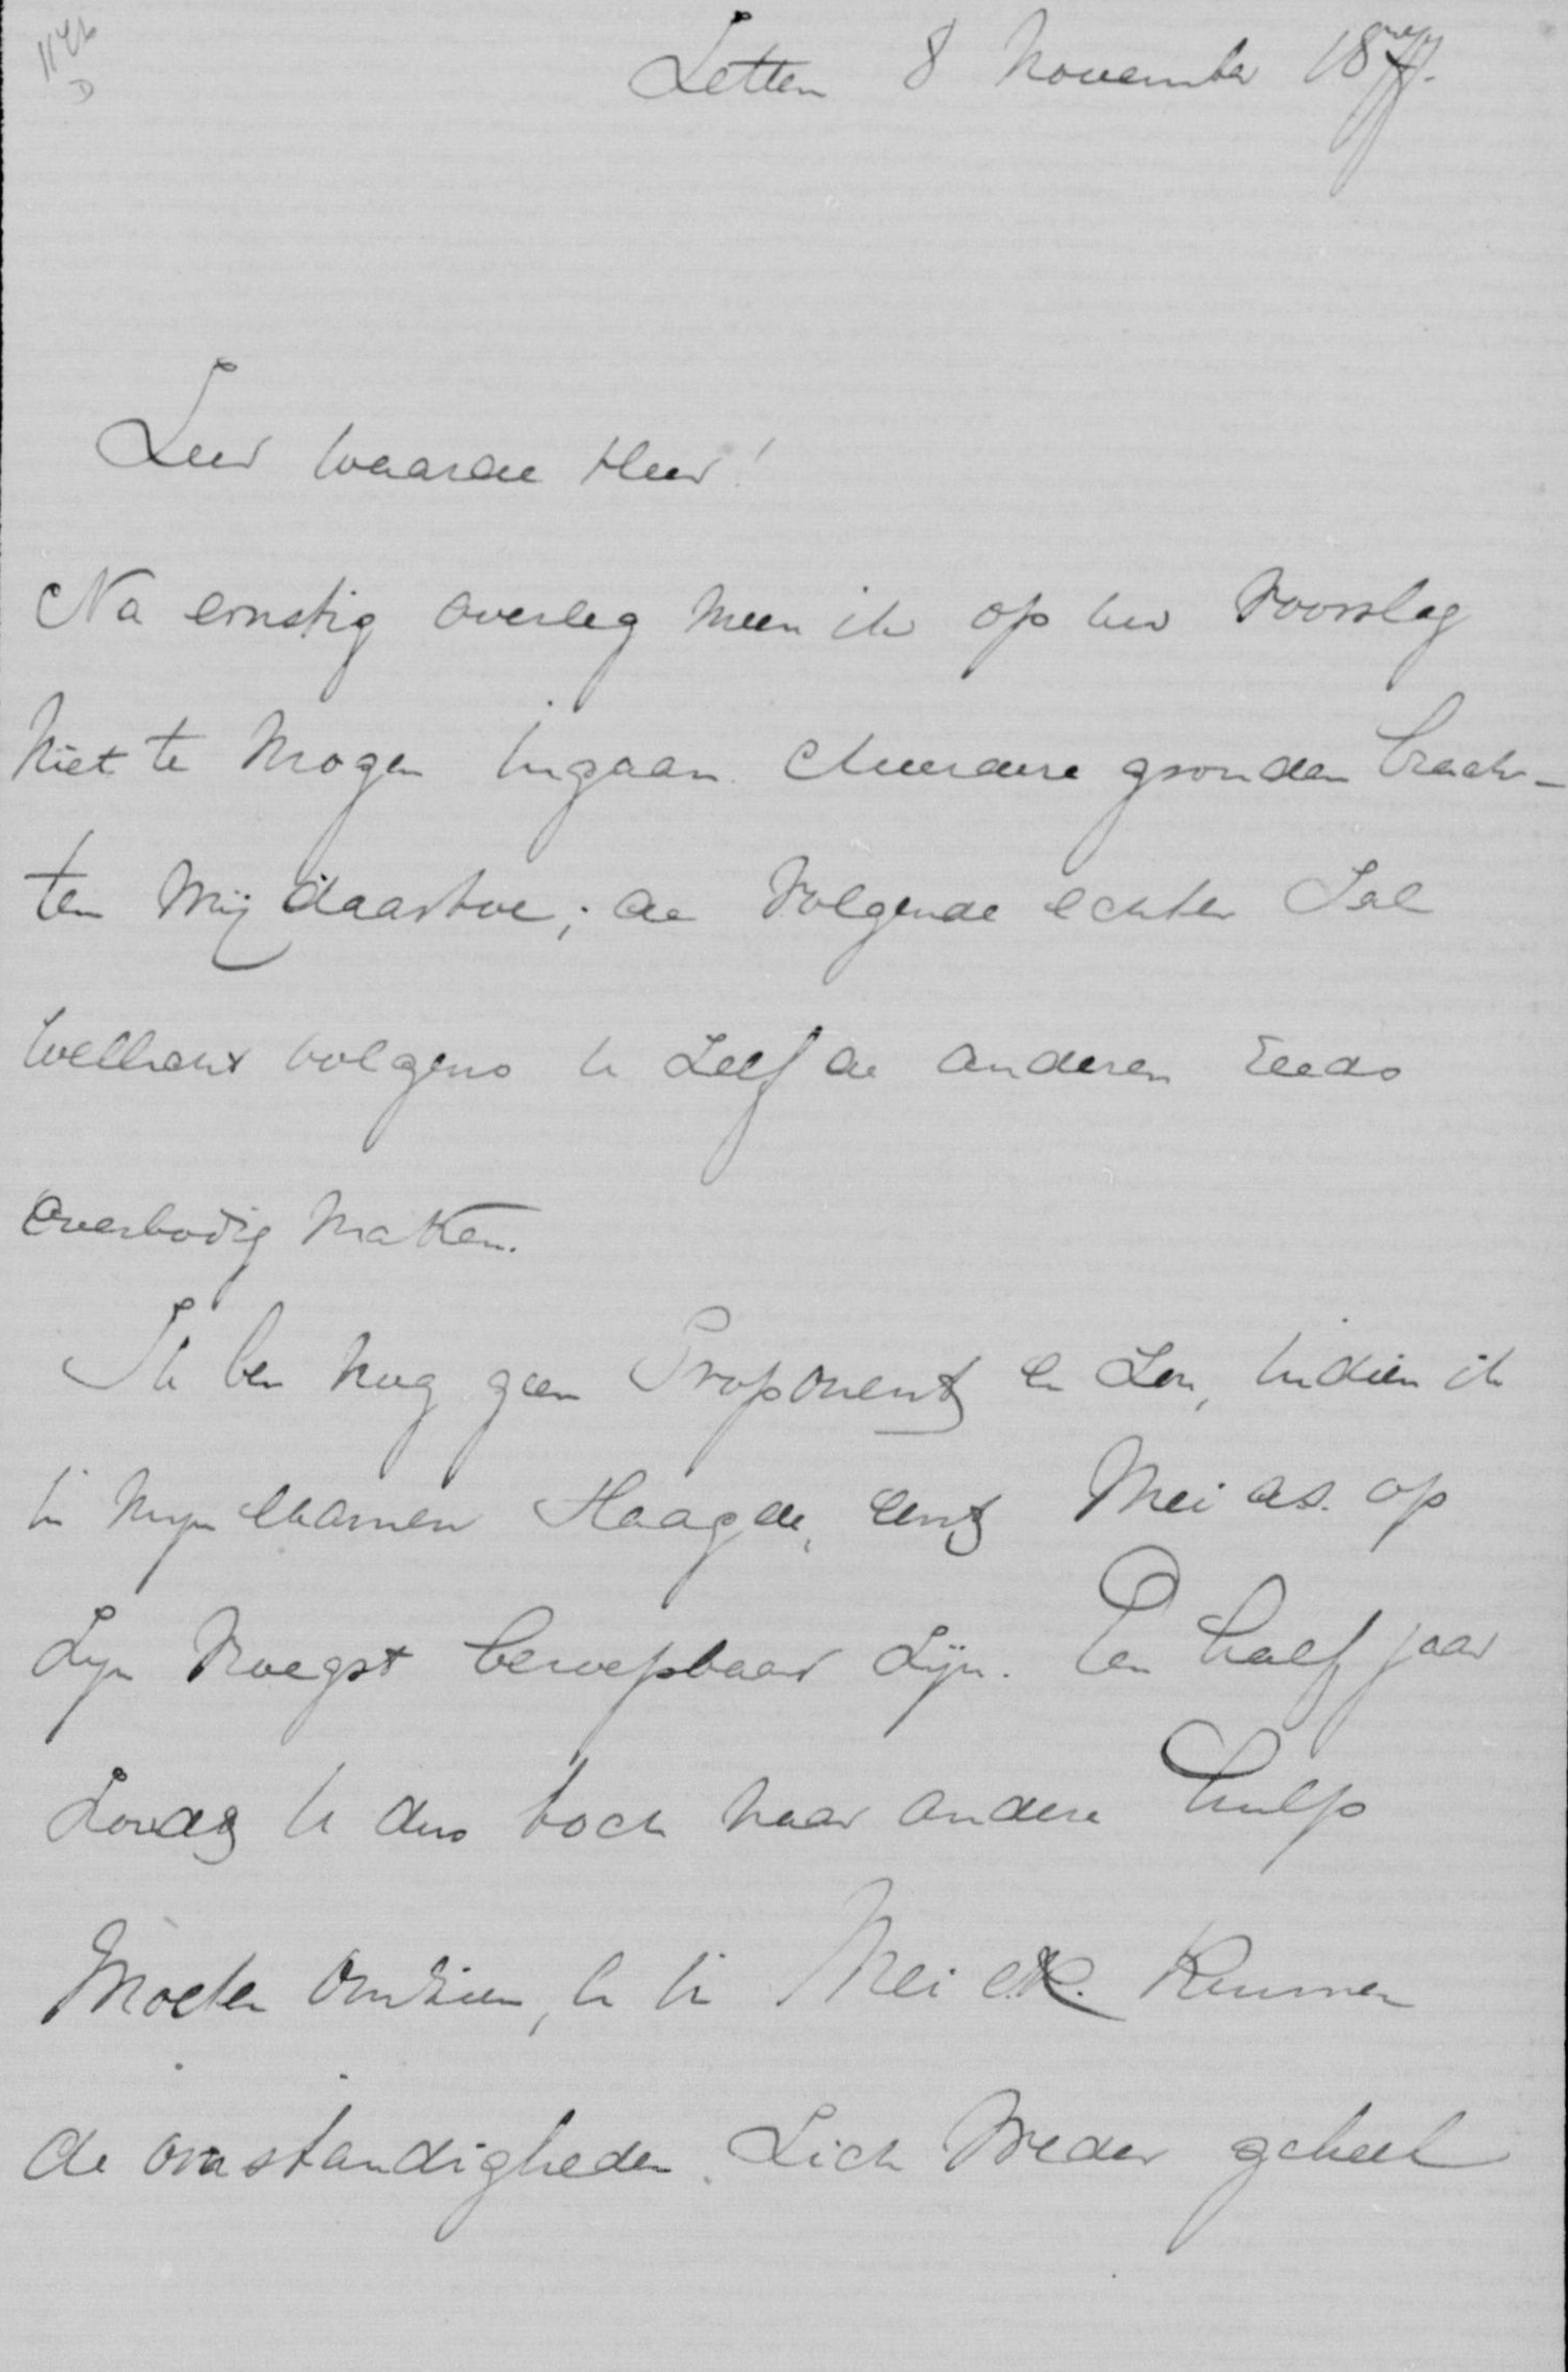 Zetten 8 November 1877.
Zeer waarde Heer!
Na ernstig overleg meen ik op uw voorslag
niet te mogen ingaan. Meerdere gronden brach-
ten mij daartoe; de volgende echter zal
wellicht volgens u zelf de anderen reeds
overbodig maken.
Ik ben nog geen Proponent en zou, indien ik
in mijn examen slaagde, eerst Mei a.s. op
zijn vroegst beroepbaar zijn. Een half jaar
zoudt u dus toch naar andere hulp
moeten omzien, en in Mei e.k. kunnen
de omstandigheden zich weder geheel